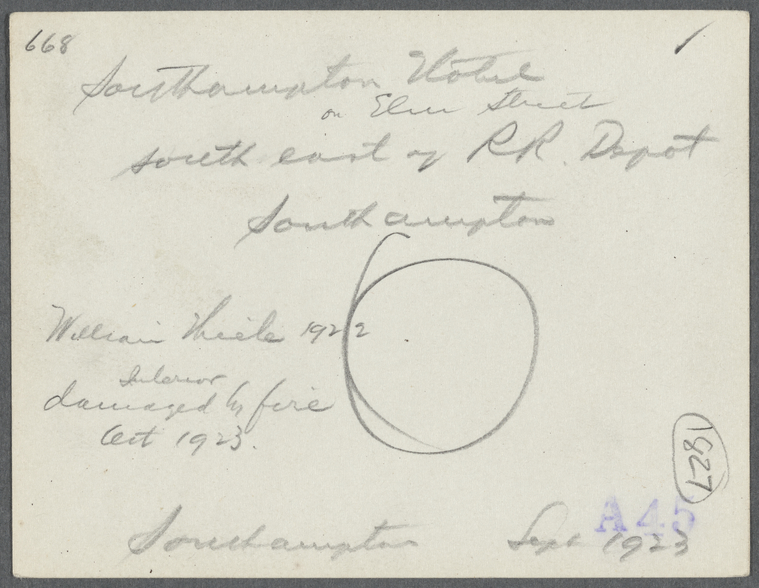 668
Southampton Hotel
on Elm Street
south east of RR. Depot
Southampton
William Thiele 1922
Interior
damaged by fire
Oct 1923.
1827
A45
Southampton Sept 1923